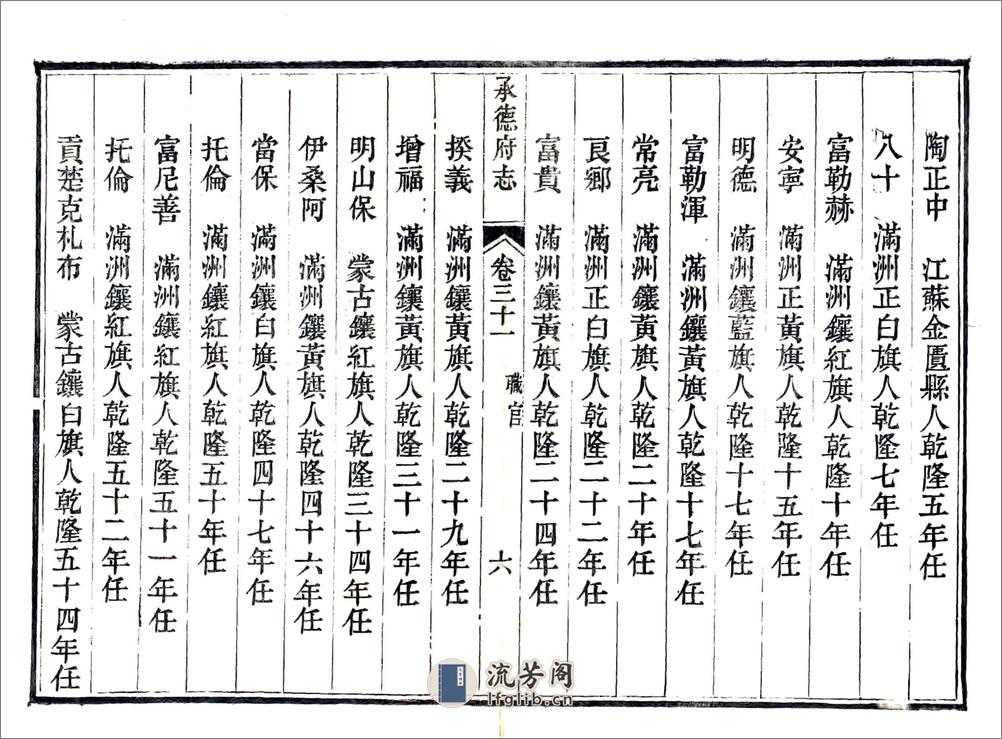 陶正中　江蘇金匱縣人乾隆五年任
八十　滿洲正白旗人乾隆七年任
富勒赫　滿洲鑲紅旗人乾隆十年任
安寧　滿洲正黃旗人乾隆十五年任
明德　滿洲鑲藍旗人乾隆十七年任
富勒渾　滿洲鑲黃旗人乾隆十七年任
常亮　滿洲鑲黃旗人乾隆二十年任
良鄉　滿洲正白旗人乾隆二十二年任
富貴　滿洲鑲黃旗人乾隆二十四年任
承德府志　卷三十一　職官　六
揆義　滿洲鑲黃旗人乾隆二十九年任
增福　滿洲鑲黃旗人乾隆三十一年任
明山保　蒙古鑲紅旗人乾隆三十四年任
伊桑阿　滿洲鑲黃旗人乾隆四十六年任
當保　滿洲鑲白旗人乾隆四十七年任
托倫　滿洲鑲紅旗人乾隆五十年任
富尼善　滿洲鑲紅旗人乾隆五十一年任
托倫　滿洲鑲紅旗人乾隆五十二年任
貢楚克札布　蒙古鑲白旗人乾隆五十四年任
流芳阁
lfglib.cn